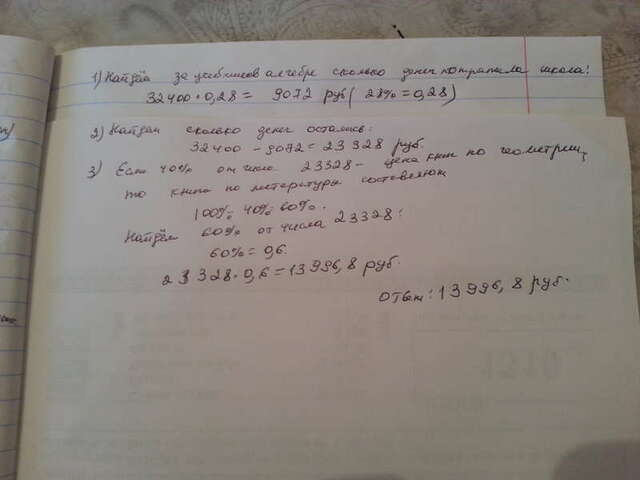 1) Найдём за учебников алгебре сколько денег потратила школа!
32400 · 0,28 = 9072 руб ( 28% = 0,28)
2) Найдём сколько денег осталось:
32400 - 9072 = 23328 руб.
3) Если 40% от числа 23328 - цена книг по геометрии,
то книга по литературы составляют
100% - 40% = 60%.
Найдём 60% от числа 23328:
60% = 0,6.
23328 · 0,6 = 13996,8 руб.
Ответ: 13996,8 руб.